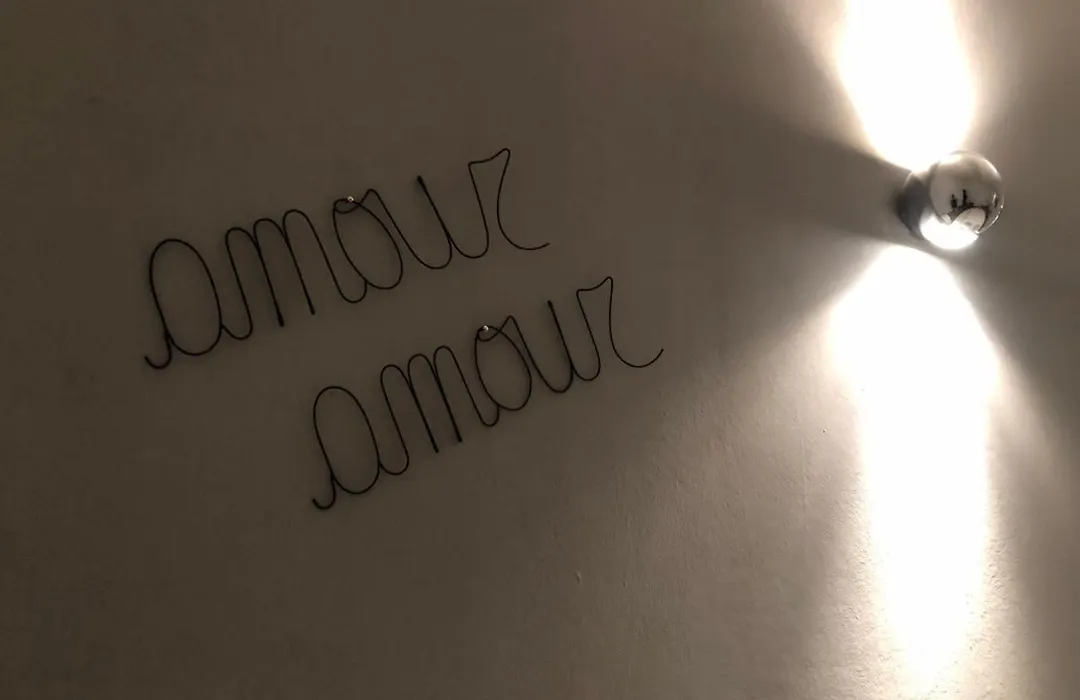 amour
amour